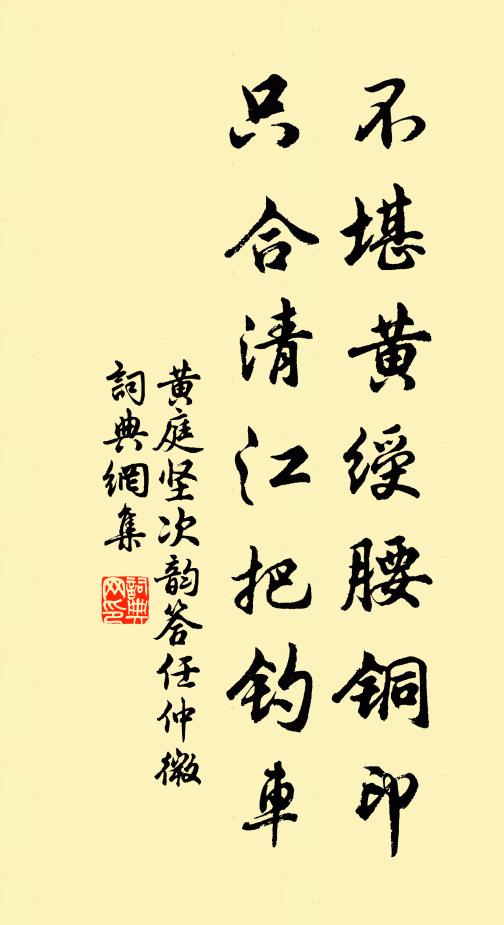 不堪黄綬腰铜印
只合清江把钓車
黄庭坚次韵答任仲微
詞典網集
詞典網印